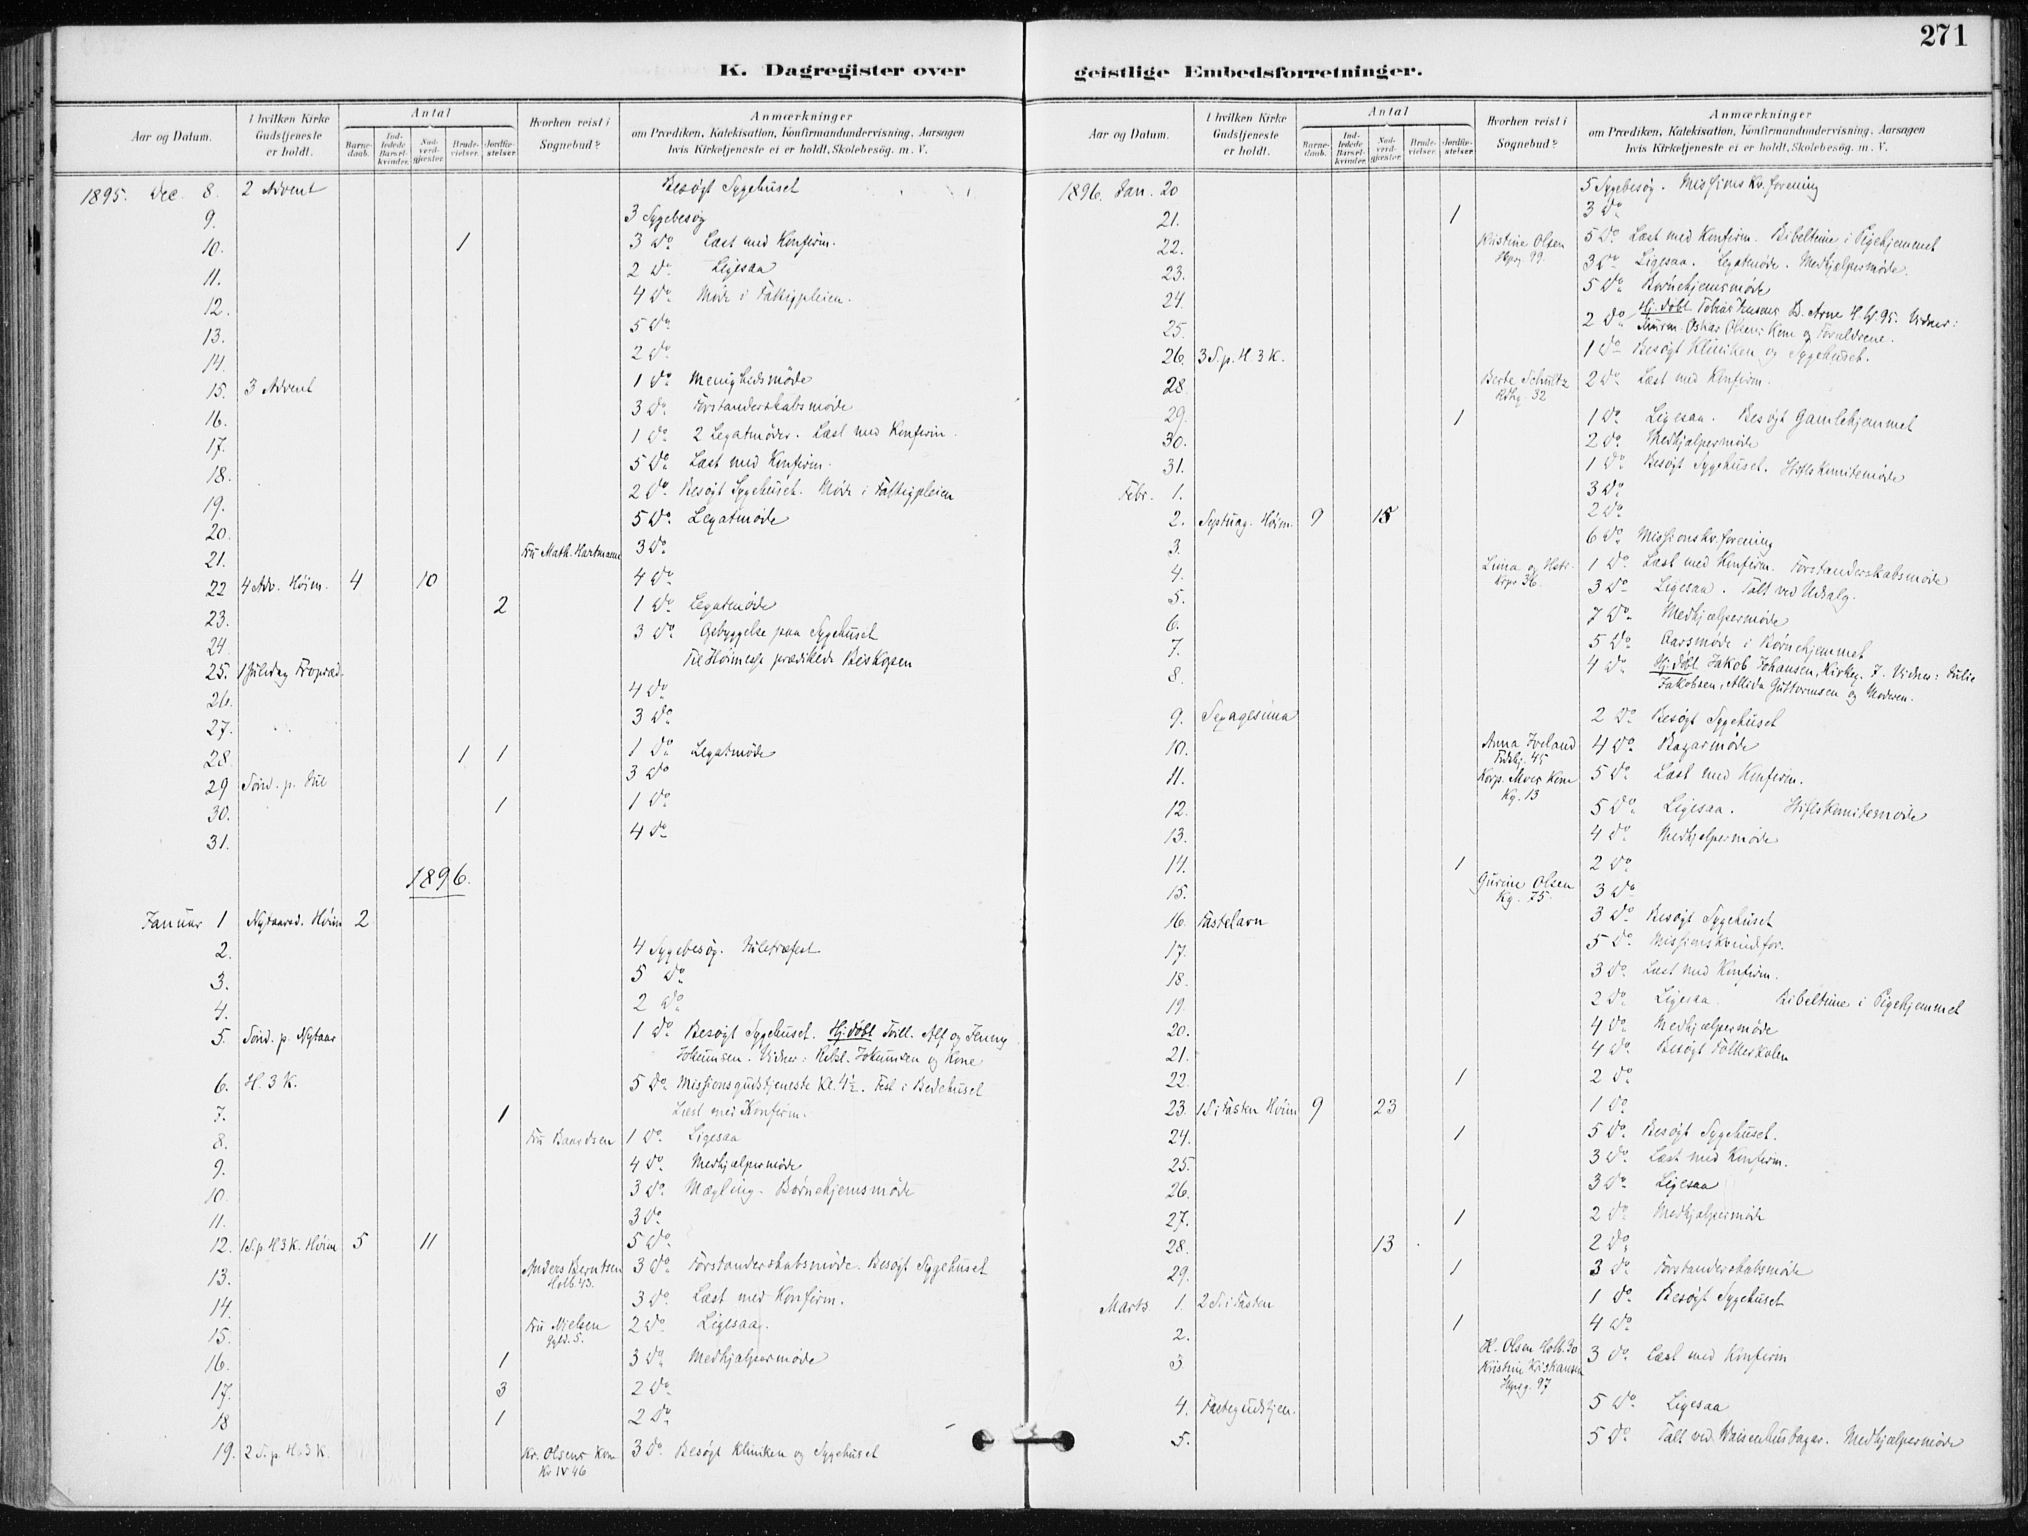 271
K. Dagregister over
geistlige Embedsforretninger.
Aar og Datum.
I hvilken Kirke Gudstjeneste er holdt.
Antal
Barnedaab.
Indledede Barselkvinder.
Nadverdgjester
Brudevielser.
Jordfæstelser
Hvorhen reist i Sognebud?
Anmærkninger
om Prædiken, Katekisation, Konfirmandundervisning, Aarsagen
hvis Kirketjeneste ei er holdt, Skolebesøg. m. V.
1895. Dec. 8. 2 Advent Besøgt Sygehuset
9. 3 Sygebesøg
10. 1 3 Do Læst med Konfirm.
11. 2 Do Ligesaa
12. 4 Do Møde i Fattigpleien.
13. 5 Do
14. 2 Do
15. 3 Advent 1 Do Menighedsmøde
16. 3 Do Forstanderskabsmøde
17. 1 Do 2 Legatmøder. Læst med Konfirm.
18. 5 Do Læst med Konfirm.
19. 2 Do Besøgt Sygehuset. Møde i Fattigpleien
20. 5 Do Legatmøde
21. Fru Math. Hartmann 3 Do
22 4 Adv. Høim. 4 10 4 Do
23. 2 1 Do Legatmøde
24. 3 Do Opbyggelse paa Sygehuset
25. 1 Juledag Fropræd. Til Høimesse prædikede Biskopen
26. 4 Do
27. 3 Do
28 1 1 1 Do Legatmøde
29 Sønd. p. Jul 3 Do
30. 1 1 Do
31. 4 Do
1896.
Januar 1 Nytaarsd. Høim 2
2. 4 Sygebesøg. Juletræfest
3. 5 Do
4. 2 Do
5. Sønd. p. Nytaar 1 Do Besøgt Sygehuset. Hj. døbt Tvill. Alf og Jenny
Jokumsen. Vidner: Jokumsen og Kone
6. H. 3 K. 5 Do Missionsgudstjeneste Kl. 4½. Fest i Bedehuset
7. 1 Læst med Konfirm.
8. Fru Baardsen 1 Do Ligesaa
9. 4 Do Medhjælpermøde
10. 3 Do Mægling. Børnehjemsmøde
11. 3 Do
12. 1 S. p. H 3 K. Høim 5 11 5 Do
13. Anders Berntsen Holb 43. 3 Do Forstanderskabsmøde. Besøgt Sygehuset
14. 3 Do Læst med Konfirm.
15. Fru Nielsen Gyld. 5. 2 Do Ligesaa.
16. 1 3 Do Medhjælpermøde
17. 3 2 Do
18 1 2 Do
19. 2 S. p. H. 3 K. Kr. Olsens Kone Kr IV 46 3 Do Besøgt Kliniken og Sygehuset
Aar og Datum.
I hvilken Kirke Gudstjeneste er holdt.
Antal
Barnedaab.
Indledede Barselkvinder.
Nadverdgjester
Brudevielser.
Jordfæstelser.
Hvorhen reist i Sognebud?
Anmærkninger
om Prædiken, Katekisation, Konfirmandundervisning, Aarsagen
hvis Kirketjeneste ei er holdt, Skolebesøg. m. V.
1896. Jan. 20 5 Sygebesøg. Missions Kv. forening
21. 1 3 Do
22. Kristine Olsen 99. 5 Do Læst med Konfirm. Bibeltime i Pigehjemmet
23. 3 Do Ligesaa. Legatmøde. Medhjælpermøde.
24 5 Do Børnehjemsmøde
25. 2 Do Hj. døbt Tobias Jensens B. Arne H. W. 95. Vidner:
Murm. Oskar Olsens Kone og Forældrene.
26. 3 S. p. H 3 K. 1 Do Besøgt Kliniken og Sygehuset.
28 Berte Schultz 32 2 Do Læst med Konfirm.
29. 1 1 Do Ligesaa. Besøgt Gamlehjemmet
30. 2 Do Medhjælpermøde
31. 1 Do Besøgt Sygehuset. Stiftskomitemøde
Febr. 1. 3 Do
2. Septuag. Høim. 9 15 2 Do
3. 6 Do Missionskv. forening
4. 36. 1 Do Læst med Konfirm. Forstanderskabsmøde
5. 3 Do Ligesaa. Talt ved Udsalg.
6. 7 Do Medhjælpermøde
7. 5 Do Aarsmøde i Børnehjemmet
8. 4 Do Hj. døbt Jakob Johansen, Kirkeg. 7. Vidner: Julie
Jakobsen, Alida Guttormsen og Moderen.
9. Sexagesima 2 Do Besøgt Sygehuset
10. Anna Iveland 45 4 Do Bazarmøde
11. Korp. Moes Kone Kg. 13 5 Do Læst med Konfirm.
12. 5 Do Ligesaa. Stiftskomitemøde
13. 4 Do Medhjælpermøde
14. 1 2 Do
15. Gurine Olsen Kg. 75. 3 Do
16. Fastelavn 3 Do Besøgt Sygehuset
17. 5 Do Missionskvindefor.
18. 3 Do Læst med Konfirm.
19. 2 Do Ligesaa. Bibeltime i Pigehjemmet
20. 4 Do Medhjælpermøde
21. 4 Do Besøgt Folkeskolen
22. 1 2 Do
23. 1 S. i Fasten Høim 9 23 1 Do
24. 1 5 Do Besøgt Sygehuset.
25. 3 Do Læst med Konfirm.
26. 3 Do Ligesaa
27. 1 2 Do Medhjælpermøde
28. 13 2 Do
29. 1 3 Do Forstanderskabsmøde
Marts 1. 2 S. i Fasten 1 Do Besøgt Sygehuset
2. 1 4 Do
3 K. Olsen Holb. 30 Kristine Kristiansen 97 3 Do Læst med Konfirm
4. Fastegudstjen. 5 Do Ligesaa
5. 5 Do Talt ved Waisenhusbazar. Medhjælpermøde